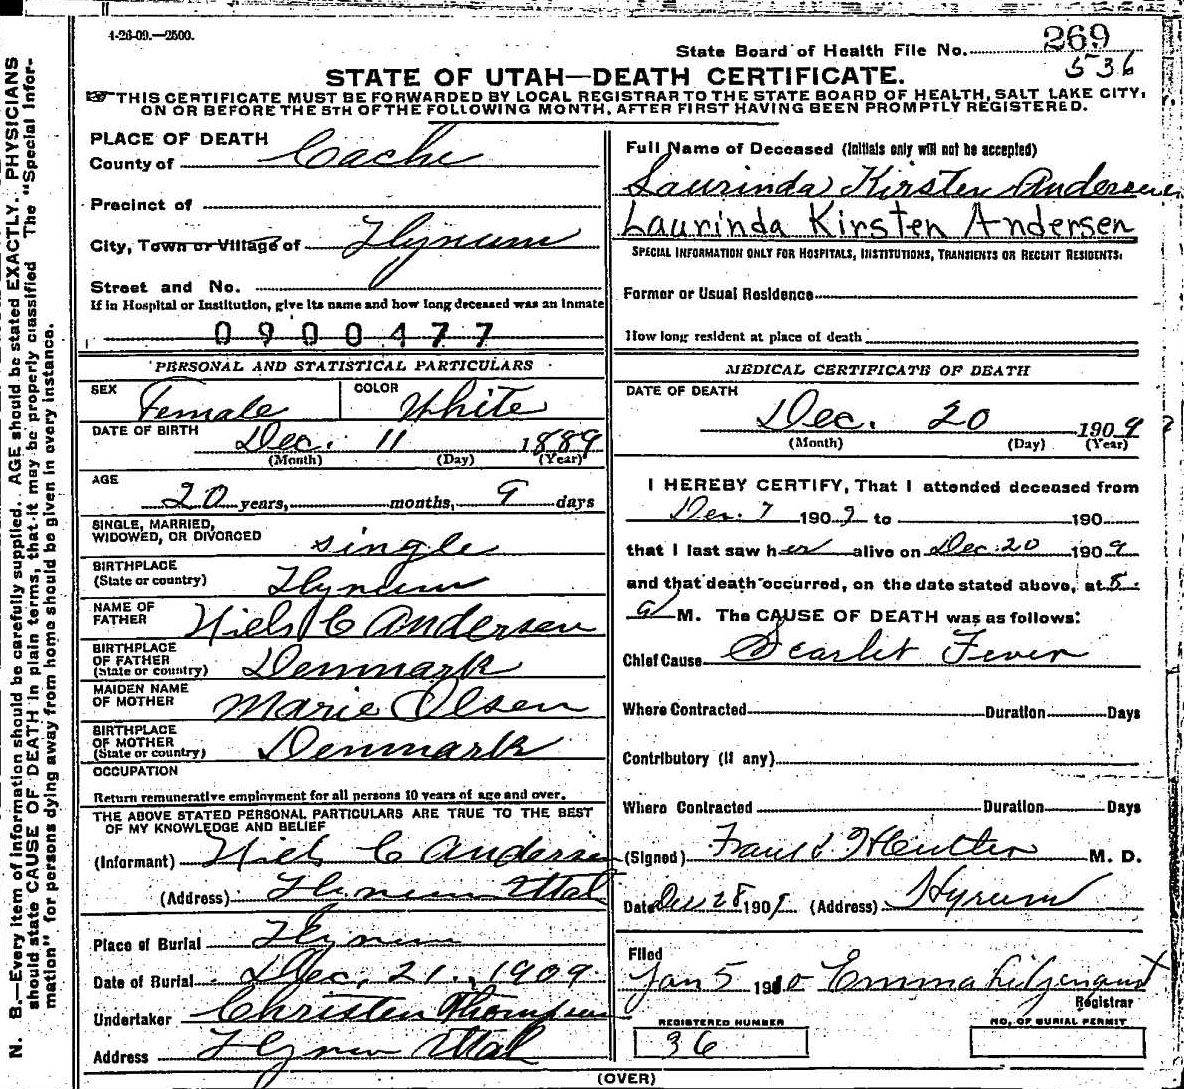 4-26-09.—2500.
State Board of Health File No. 269
536
STATE OF UTAH—DEATH CERTIFICATE.
THIS CERTIFICATE MUST BE FORWARDED BY LOCAL REGISTRAR TO THE STATE BOARD OF HEALTH, SALT LAKE CITY,
ON OR BEFORE THE 5TH OF THE FOLLOWING MONTH, AFTER FIRST HAVING BEEN PROMPTLY REGISTERED.
PLACE OF DEATH
County of Cache
Precinct of
City, Town or Village of Hyrum
Street and No.
If in Hospital or Institution, give its name and how long deceased was an inmate
0900477
PERSONAL AND STATISTICAL PARTICULARS
SEX Female COLOR White
DATE OF BIRTH Dec. 11 1889
(Month) (Day) (Year)
AGE
20 years, months, 9 days
SINGLE, MARRIED,
WIDOWED, OR DIVORCED single
BIRTHPLACE
(State or country) Hyrum
NAME OF
FATHER Niels C Andersen
BIRTHPLACE
OF FATHER
(State or country) Denmark
MAIDEN NAME
OF MOTHER Marie Olsen
BIRTHPLACE
OF MOTHER
(State or country) Denmark
OCCUPATION
Return remunerative employment for all persons 10 years of age and over.
THE ABOVE STATED PERSONAL PARTICULARS ARE TRUE TO THE BEST
OF MY KNOWLEDGE AND BELIEF
(Informant) Niels C Andersen
(Address) Hyrum Utah
Place of Burial Hyrum
Date of Burial Dec. 21, 1909.
Undertaker Christen Thompson
Address Hyrum Utah
Full Name of Deceased (Initials only will not be accepted)
Laurinda Kirsten Andersen
Laurinda Kirsten Andersen
SPECIAL INFORMATION ONLY FOR HOSPITALS, INSTITUTIONS, TRANSIENTS OR RECENT RESIDENTS.
Former or Usual Residence
How long resident at place of death
MEDICAL CERTIFICATE OF DEATH
DATE OF DEATH
Dec. 20 1909 ?
(Month) (Day) (Year)
I HEREBY CERTIFY, That I attended deceased from
Dec. 7 1909 to 190
that I last saw her alive on Dec. 20 1909
and that death occurred, on the date stated above, at 8
a M. The CAUSE OF DEATH was as follows:
Chief Cause Scarlet Fever
Where Contracted Duration Days
Contributory (if any)
Where Contracted Duration Days
(Signed) M. D.
Date Dec 28 1909 (Address) Hyrum
Filed
Jan 5 1910 Emma
Registrar
REGISTERED NUMBER
36
NO. OF BURIAL PERMIT
(OVER)
N. B.—Every item of information should be carefully supplied. AGE should be stated EXACTLY. PHYSICIANS
should state CAUSE OF DEATH in plain terms, that it may be properly classified The "Special Infor-
mation" for persons dying away from home should be given in every instance.